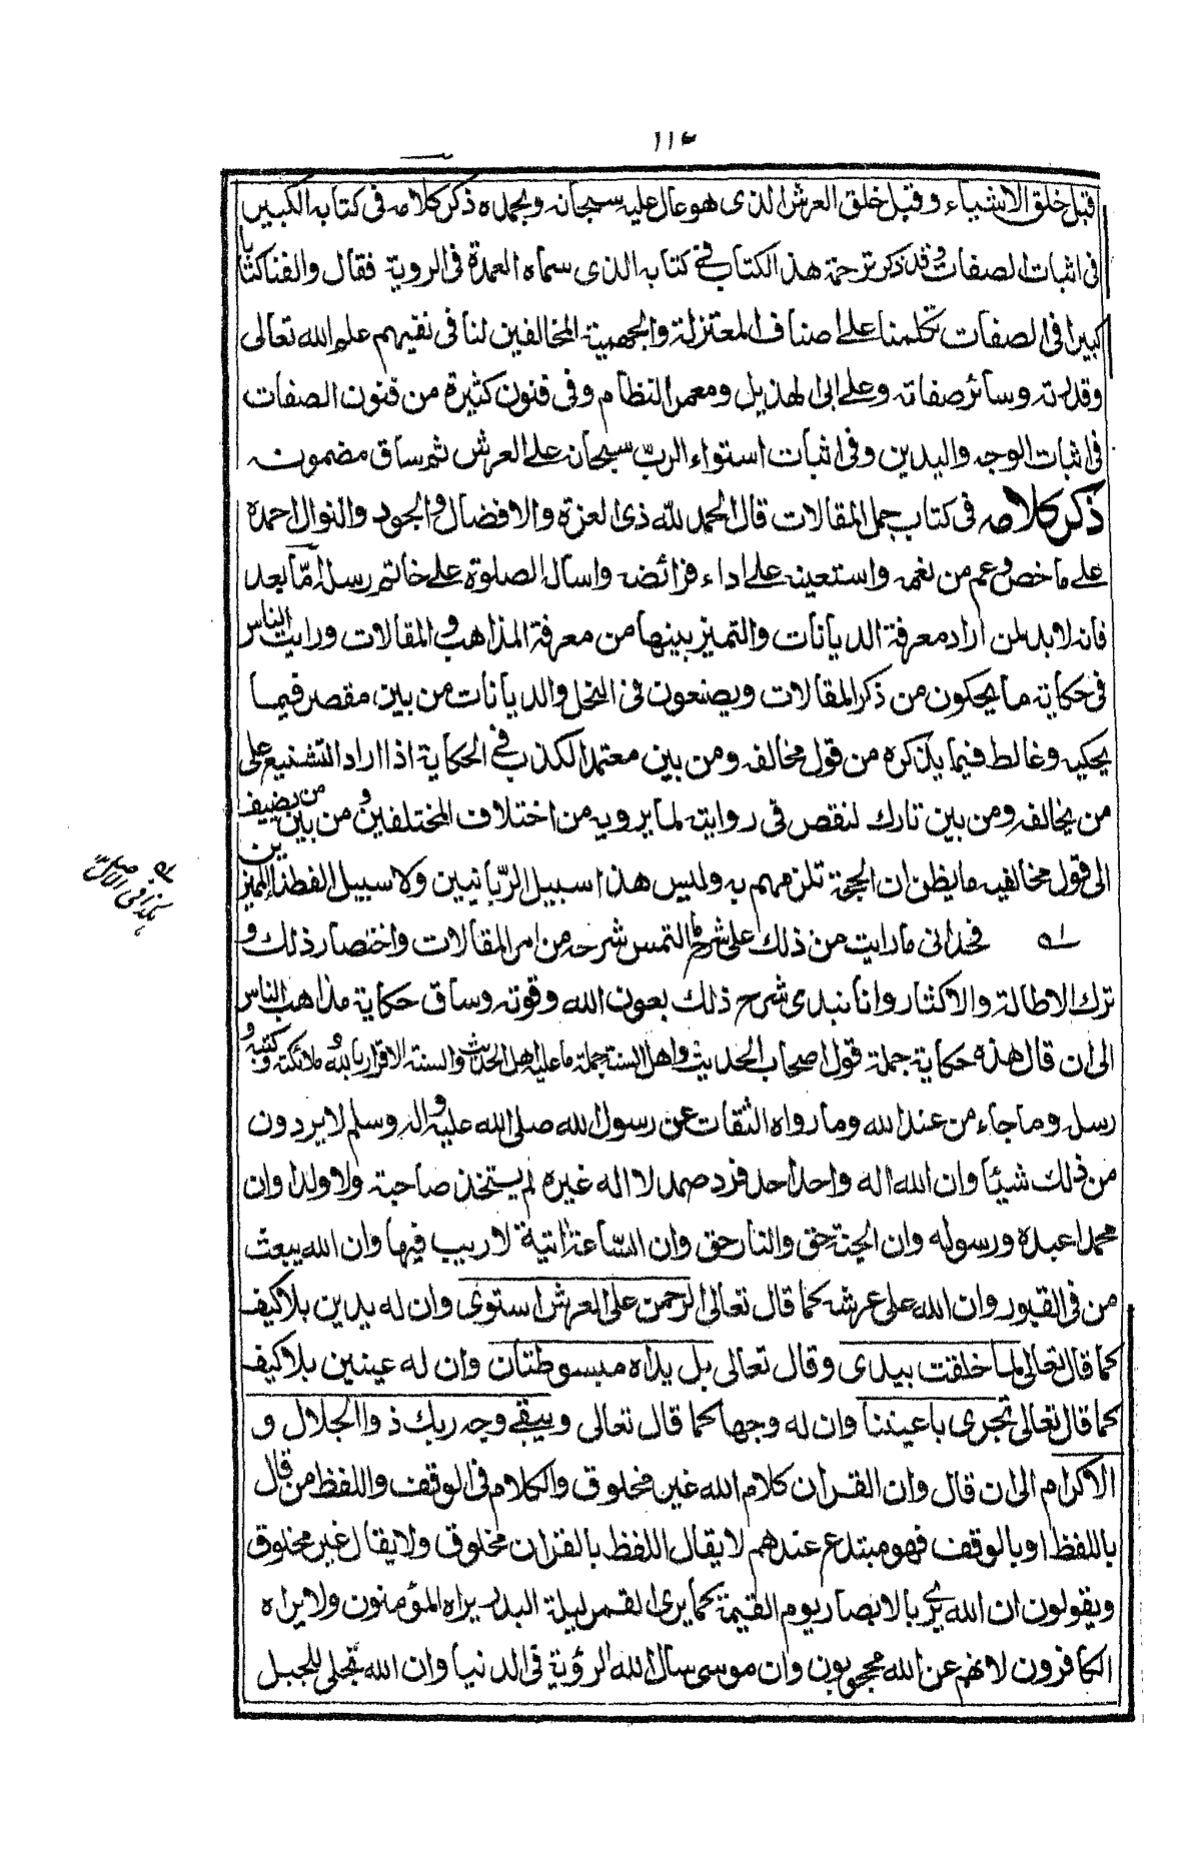 ١١٤
قبل خلق الاشياء وقبل خلق العرش الذى هو عال عليه سبحانه وبحمده ذكر كلامه فى كتابه الكبير
فى اثبات الصفات وقد ذكر ترجمة هذ الكتاب فى كتابه الذى سماه العمدة فى الروية فقال والفنا كتابا
كبيرا فى الصفات تكلمنا على اصناف المعتزلة والجهمية المخالفين لنا فى نفيهم علم الله تعالى
وقدرته وسائر صفاته وعلى ابى الهذيل ومعمر النظام وفى فنون كثيرة من فنون الصفات
فى اثبات الوجه واليدين وفى اثبات استواء الرب سبحانه على العرش ثم ساق مضمونه
ذكر كلامه فى كتاب جمل المقالات قال الحمد لله ذى العزة والافضال والجود والنوال احمده
على ما خص وعم من نعمه واستعينه على اداء فرائضه واسال الصلوة على خاتم رسله امّا بعد
فانه لابد لمن اراد معرفة الديانات والتميز بينها من معرفة المذاهب والمقالات ورايت الناس
فى حكاية ما يحكون من ذكر المقالات ويصنعون فى النحل والديانات من بين مقصر فيما
يحكيه وغالط فيما يذكره من قول مخالفه ومن بين معتمد الكذب فى الحكاية اذا اراد التشنيع على
من يخالفه ومن بين تارك لنقص فى روايته لما يرويه من اختلاف المختلفين ومن بين من يضيف
الى قول مخالفيه ما يظن ان الحجة تلزمهم به وليس هذا سبيل الربانيين ولا سبيل الفطناء المميزين
له فحدانى ما رايت من ذلك على شرح ما التمس شرحه من امر المقالات واختصار ذلك و
ترك الاطالة والاكثار وانا نبدى شرح ذلك بعون الله وقوته وساق حكاية مذاهب الناس
الى ان قال هذه حكاية جملة قول اصحاب الحديث واهل السنة جملة ما عليه اهل الحديث والسنة الاقرار بالله وملائكته وكتبه و
رسله وما جاء من عند الله وما رواه الثقات عن رسول الله صلى الله عليه واله وسلم لا يردون
من ذلك شيئا وان الله اله واحد احد فرد صمد لا اله غيره لم يتخذ صاحبة ولا ولدا وان
محمدا عبده ورسوله وان الجنة حق والنار حق وان الساعة اتية لا ريب فيها وان الله يبعث
من فى القبور وان الله على عرشه كما قال تعالى الرحمن على العرش استوى وان له يدين بلا كيف
كما قال تعالى لما خلقت بيدى وقال تعالى بل يداه مبسوطتان وان له عينين بلا كيف
كما قال تعالى تجرى باعيننا وان له وجها كما قال تعالى ويبقى وجه ربك ذوا الجلال و
الاكرام الى ان قال وان القران كلام الله غير مخلوق والكلام فى الوقف واللفظ من قال
باللفظ او بالوقف فهو مبتدع عندهم لا يقال اللفظ بالقران مخلوق ولا يقال غير مخلوق
ويقولون ان الله يرى بالابصار يوم القيمة كما يرى القمر ليلة البدر يراه المؤمنون ولا يراه
الكافرون لانهم عن الله محجوبون وان موسى سال الله الرؤية فى الدنيا وان الله تجلى للجبل
له هكذا فى الاصل